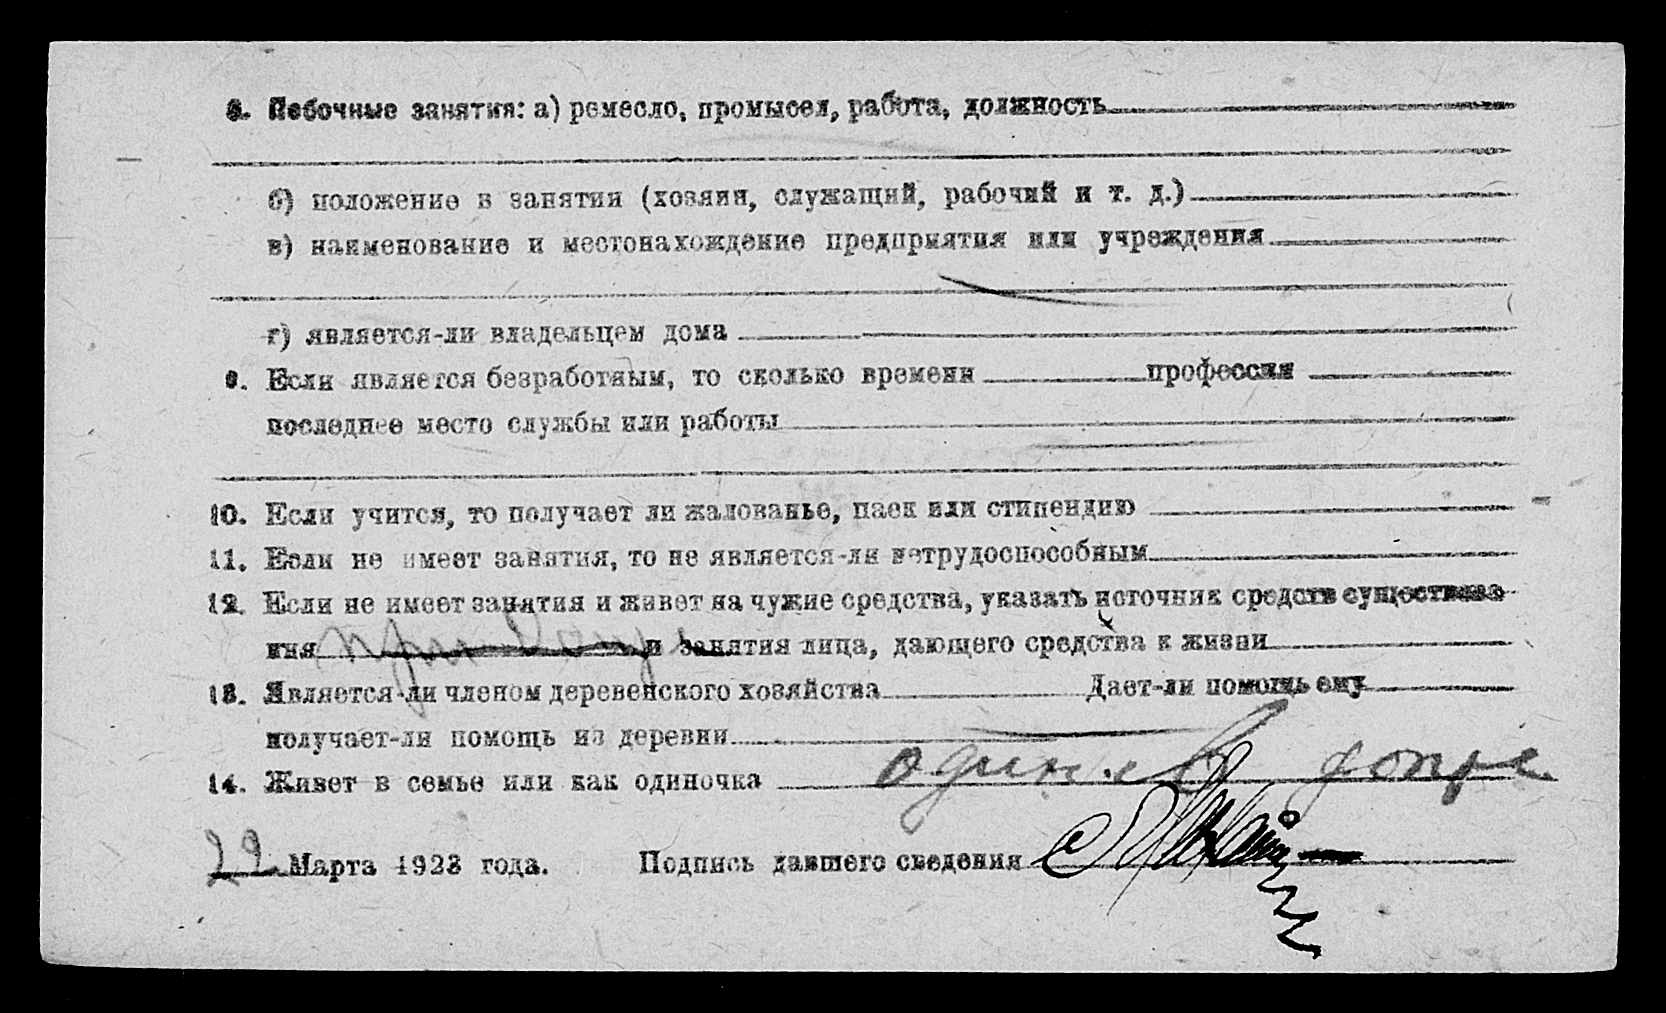 8. Побочные занятия: а) ремесло, промысел, работа, должность
б) положение в занятии (хозяин, служащий, рабочий и т. д.)
в) наименование и местонахождение предприятия или учреждения
г) является-ли владельцем дома
9. Если является безработным, то сколько времени профессия
последнее место службы или работы
10. Если учится, то получает ли жалованье, паек или стипендию
11. Если не имеет занятия, то не является-ли нетрудоспособным
12. Если не имеет занятия и живет на чужие средства, указать источник средств существова
ния и занятия лица, дающего средства к жизни
13. Является-ли членом деревенского хозяйства Дает-ли помощь ему
получает-ли помощь из деревни
14. Живет в семье или как одиночка один в допре
22 Марта 1923 года. Подпись давшего сведения